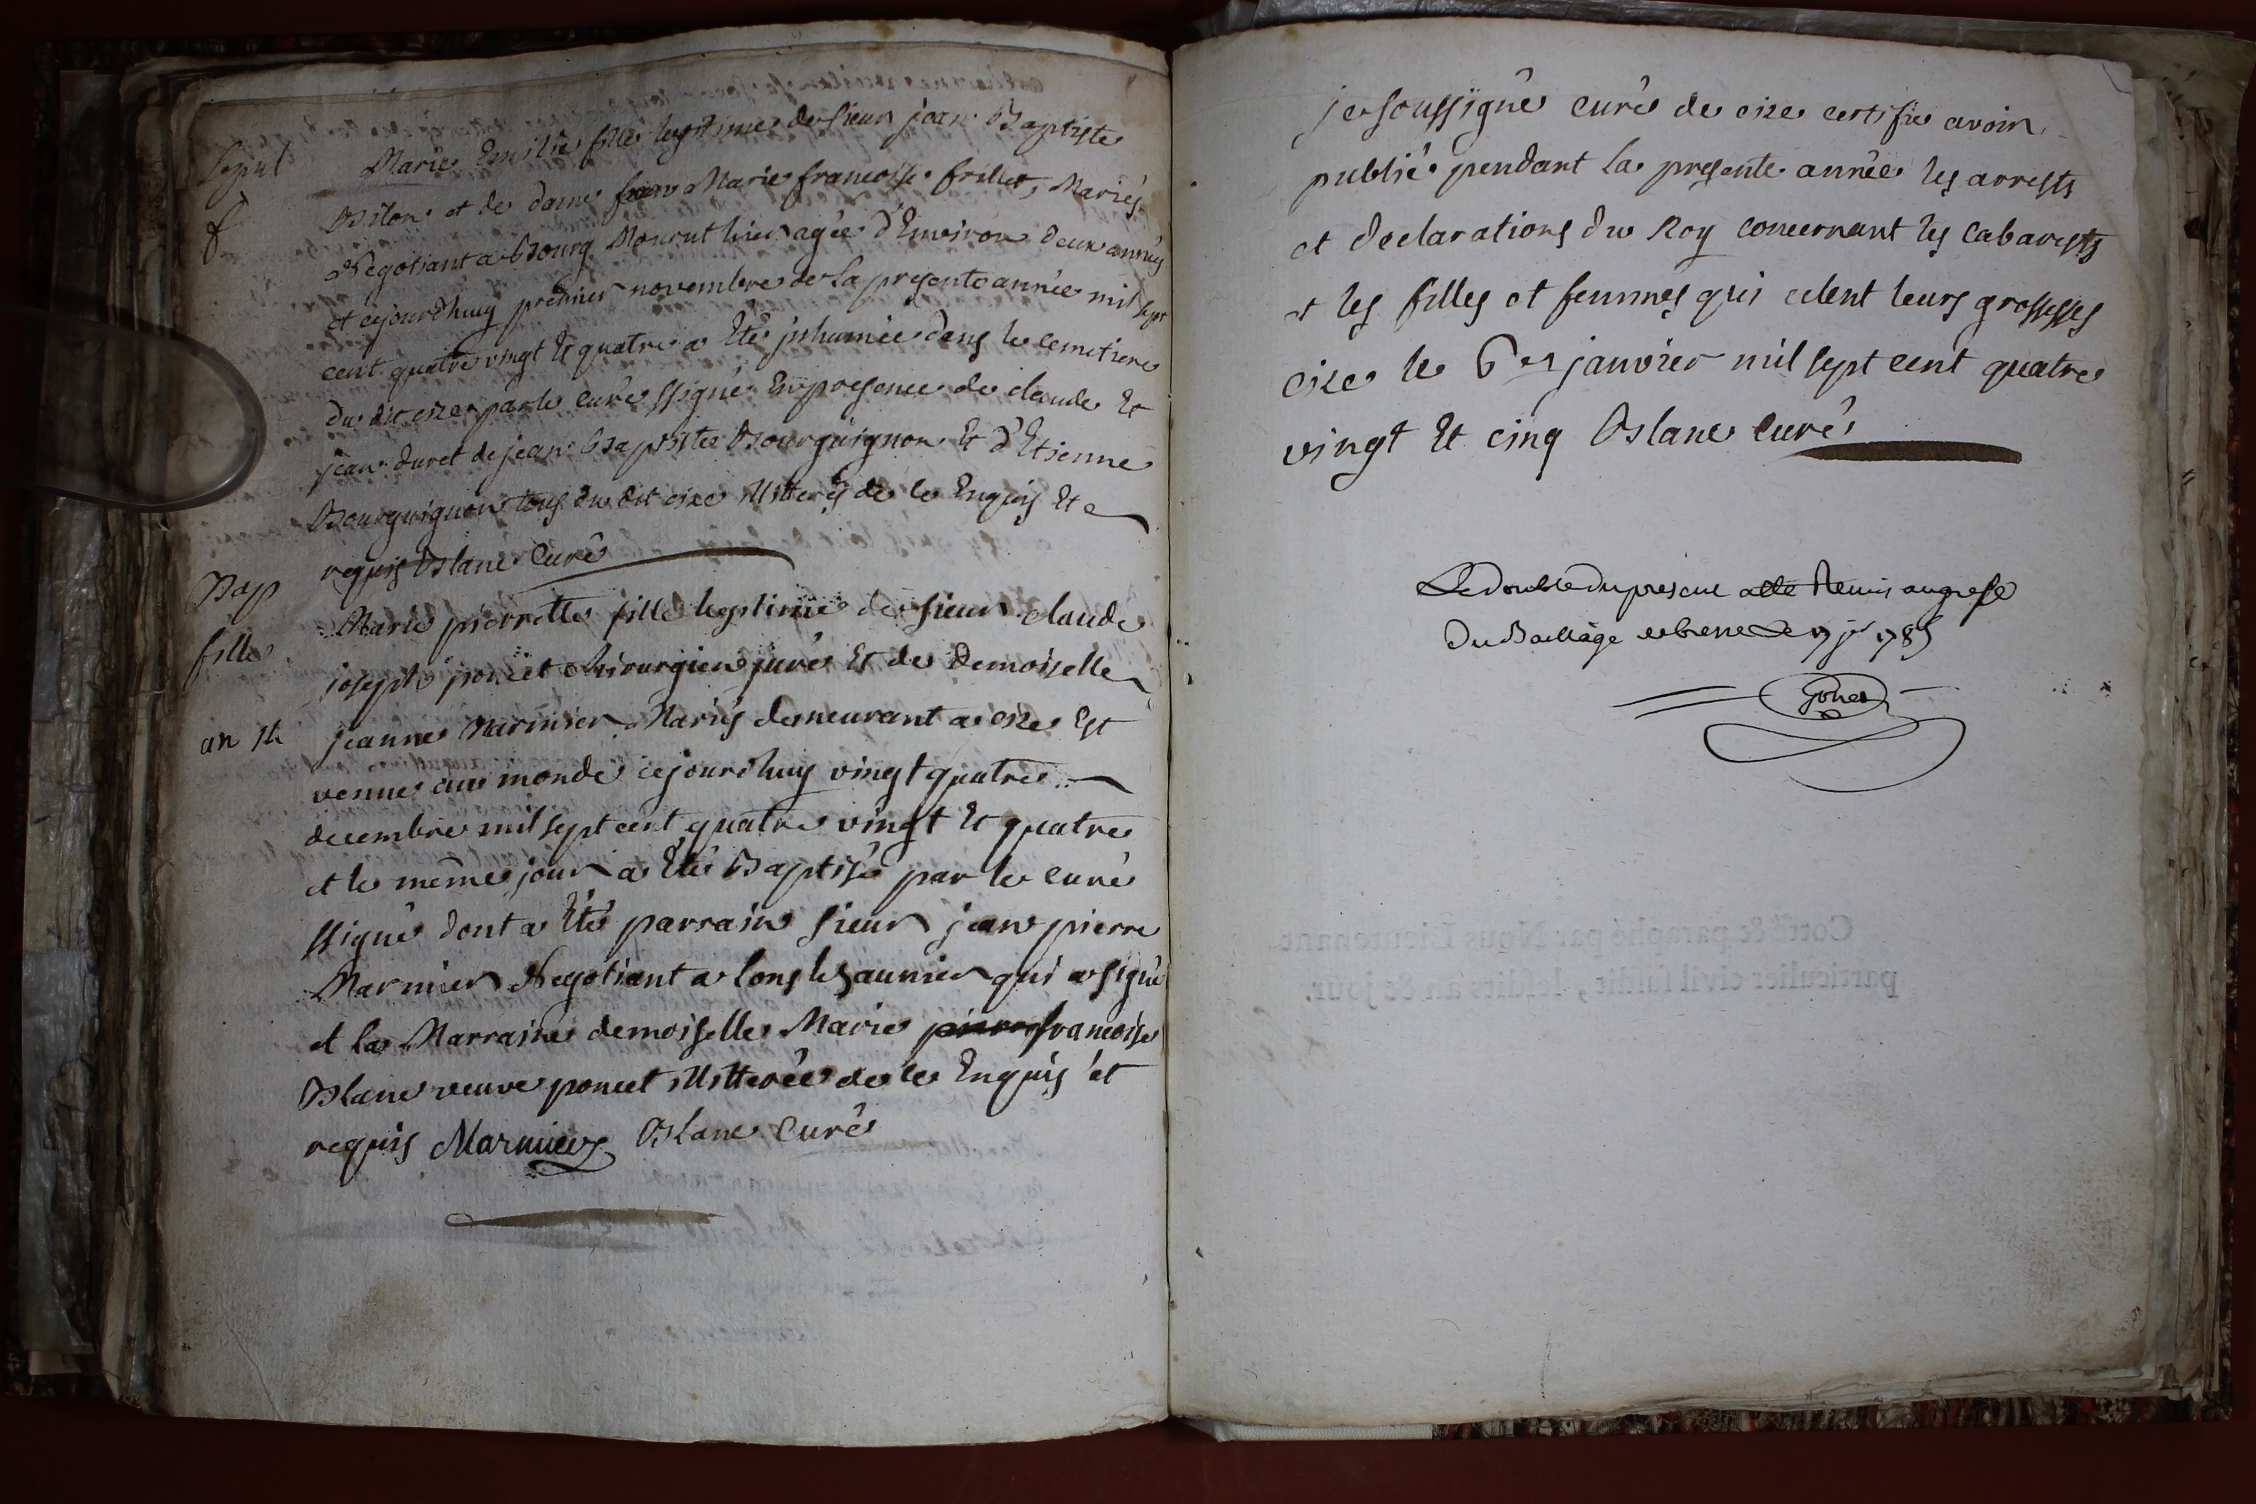 Sepul
f.
Marie Emilie fille legitime de sieur jean Baptiste
Biton et de dame Marie francoise frillet, Mariés
Negotiant a Bourg agée d'Environ deux années
et cejourdhuy premier novembre de la presente année mil sept
cent quatre vingt Et quatre a Eté jnhumée dens le cemetiere
du dit cize par le curé ssigné En presence de claude Et
jean duret de jean Baptiste Bourguignon Et d'Etienne
Bourguignon tous du dit cize illiterés de ce Enquis Et
requis Blanc Curé
Bap
fille
Marie pierrette fille legitime de sieur claude
joseph poncet chirurgien juré Et de Demoiselle
jeanne Marmier Mariés demeurant a cize Est
venue au monde cejourdhuy vingt quatre
decembre mil sept cent quatre vingt Et quatre
et le même jour a Eté Baptisé par le curé
ssigné dont a Eté parrain sieur jean pierre
Marmier Negotiant a lons le saunier qui a signé
et la Marraine demoiselle Marie francoise
Blanc veuve poncet illiterée de ce Enquis et
requis Marmier Blanc Curé
je soussigné curé de cize certifie avoir
publié pendant la presente année les arrests
et declarations du Roy concernant les cabarests
et les filles et femmes qui celent leurs grossesses
cize le 6 janvier mil sept cent quatre
vingt Et cinq Blanc Curé
Le double du present acte Remis au grefe
du Bailliage de bresse Le 17 jer 1785
Cotté & paraphé par Nous Lieutenant
particulier civil susdit, lesdits an & jour.